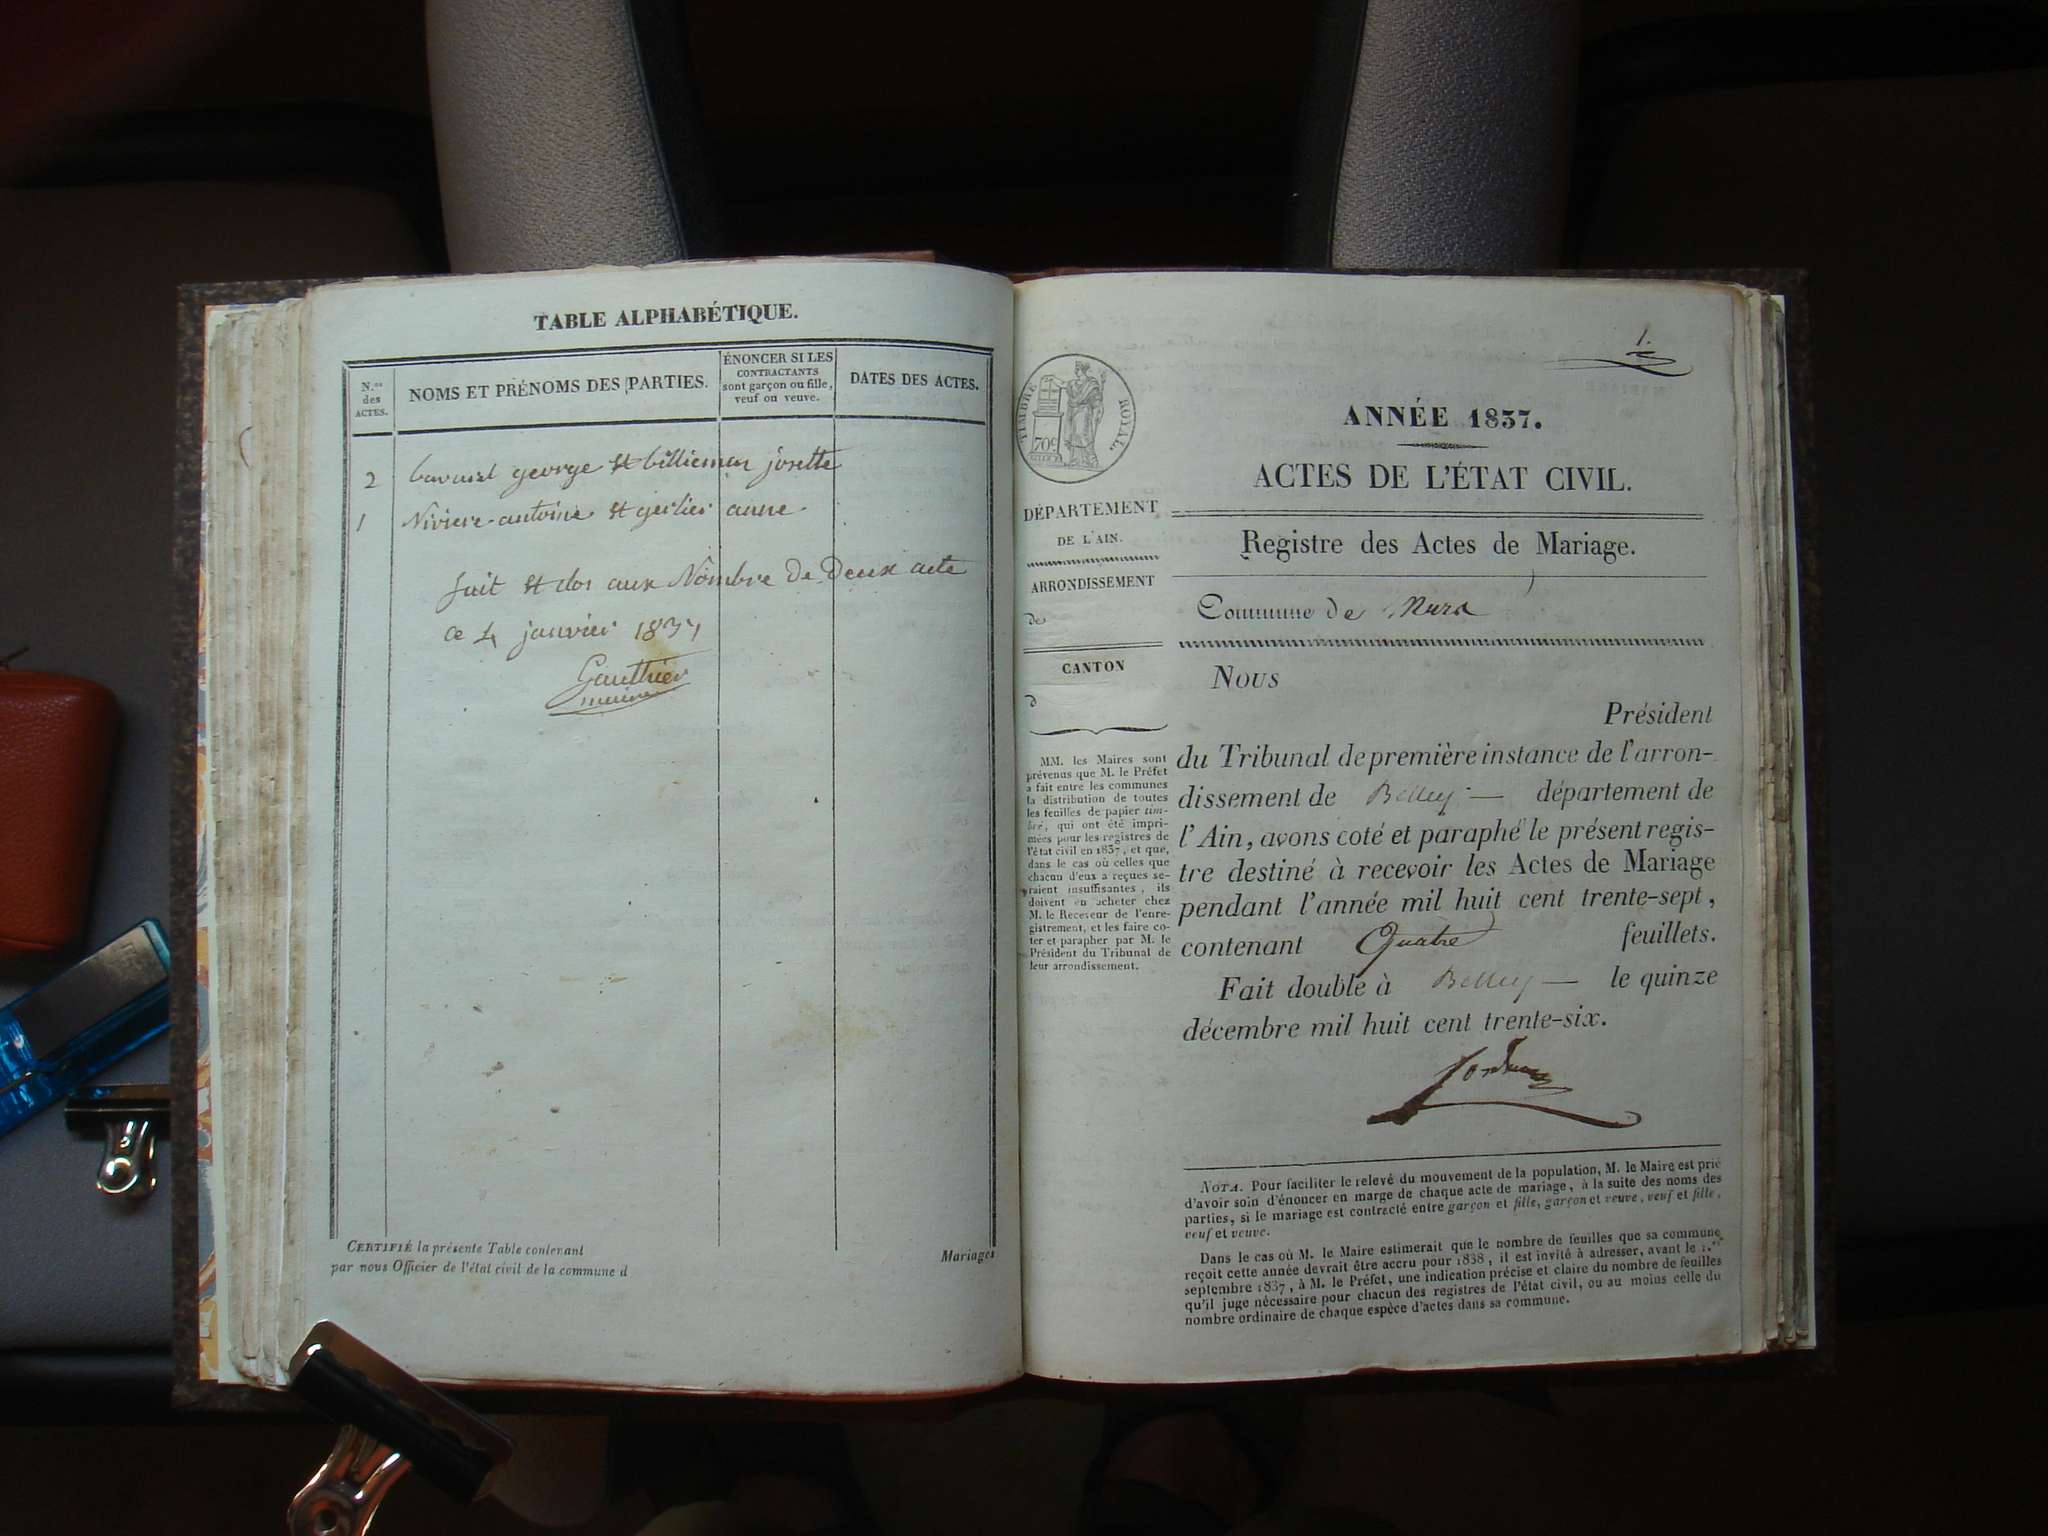 TABLE ALPHABÉTIQUE.
N.os des ACTES.
NOMS ET PRÉNOMS DES PARTIES.
ÉNONCER SI LES
CONTRACTANTS
sont garçon ou fille,
veuf ou veuve.
DATES DES ACTES.
2 george et josette
1 Niviere antoine et gerlier anne
fait et clos aux Nombre de Deux acte
ce 4 janvier 1837
Gauthier
maire
CERTIFIÉ la présente Table contenant Mariages
par nous Officier de l'état civil de la commune d
1.
TIMBRE ROYAL.
70c.
ANNÉE 1837.
ACTES DE L'ÉTAT CIVIL.
Registre des Actes de Mariage.
Commune de
DÉPARTEMENT
DE L'AIN.
ARRONDISSEMENT
de
CANTON
d
MM. les Maires sont
prévenus que M. le Préfet
a fait entre les communes
la distribution de toutes
les feuilles de papier tim-
bré, qui ont été impri-
mées pour les registres de
l'état civil en 1837, et que,
dans le cas où celles que
chacun d'eux a reçues se-
raient insuffisantes, ils
doivent en acheter chez
M. le Receveur de l'enre-
gistrement, et les faire co-
ter et parapher par M. le
Président du Tribunal de
leur arrondissement.
NOUS
Président
du Tribunal de première instance de l'arron-
dissement de Belley — département de
l'Ain, avons coté et paraphé le présent regis-
tre destiné à recevoir les Actes de Mariage
pendant l'année mil huit cent trente-sept,
contenant Quatre feuillets.
Fait double à Belley — le quinze
décembre mil huit cent trente-six.
NOTA. Pour faciliter le relevé du mouvement de la population, M. le Maire est prié
d'avoir soin d'énoncer en marge de chaque acte de mariage, à la suite des noms des
parties, si le mariage est contracté entre garçon et fille, garçon et veuve, veuf et fille,
veuf et veuve.
Dans le cas où M. le Maire estimerait que le nombre de feuilles que sa commune
reçoit cette année devrait être accru pour 1838, il est invité à adresser, avant le 1.er
septembre 1837, à M. le Préfet, une indication précise et claire du nombre de feuilles
qu'il juge nécessaire pour chacun des registres de l'état civil, ou au moins celle du
nombre ordinaire de chaque espèce d'actes dans sa commune.